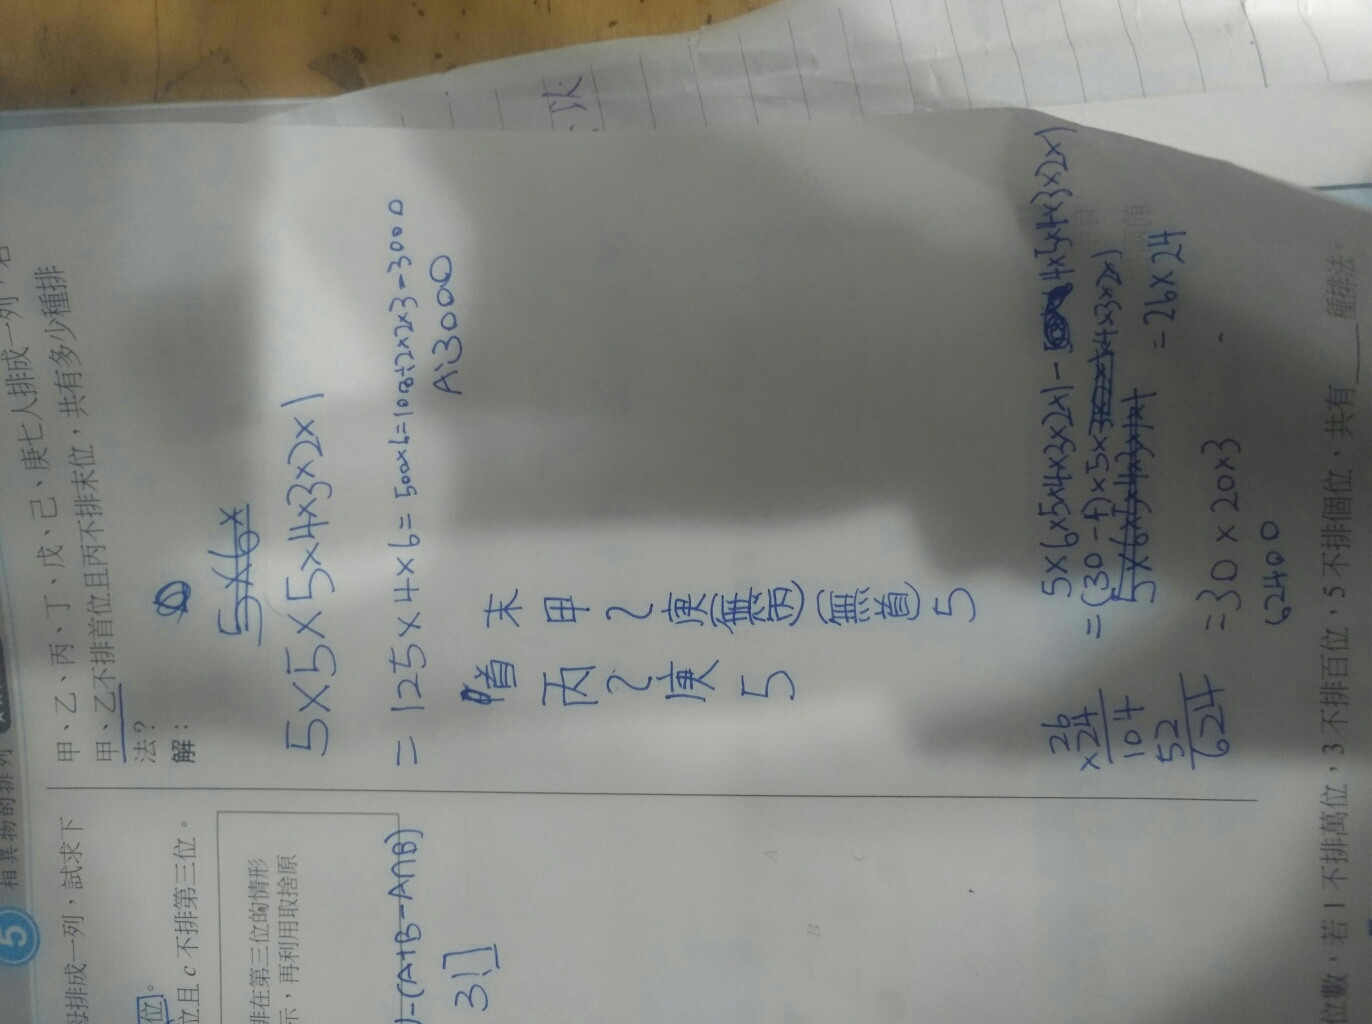 5 相異物的排列
母排成一列，試求下
位。
位且 c 不排第三位。
排在第三位的情形
示，再利用取捨原
)-(A+B-A∩B)
3!]
甲、乙、丙、丁、戊、己、庚七人排成一列，若
甲、乙不排首位且丙不排末位，共有多少種排
法？
解：
5×(6×
5×5×5×4×3×2×1
=125×4×6=500×6=1000÷2×2×3=3000
A:3000
末 甲 乙 庚(無丙)(無首) 5
首 丙 乙 庚 5
5×6×5×4×3×2×1-4×5×4×3×2×1
=(30-4)×5×4×3×2×1
=26×24
26
×24
104
52
624
=30×20×3
62400
位數，若 1 不排萬位，3 不排百位，5 不排個位，共有____種排法。
以